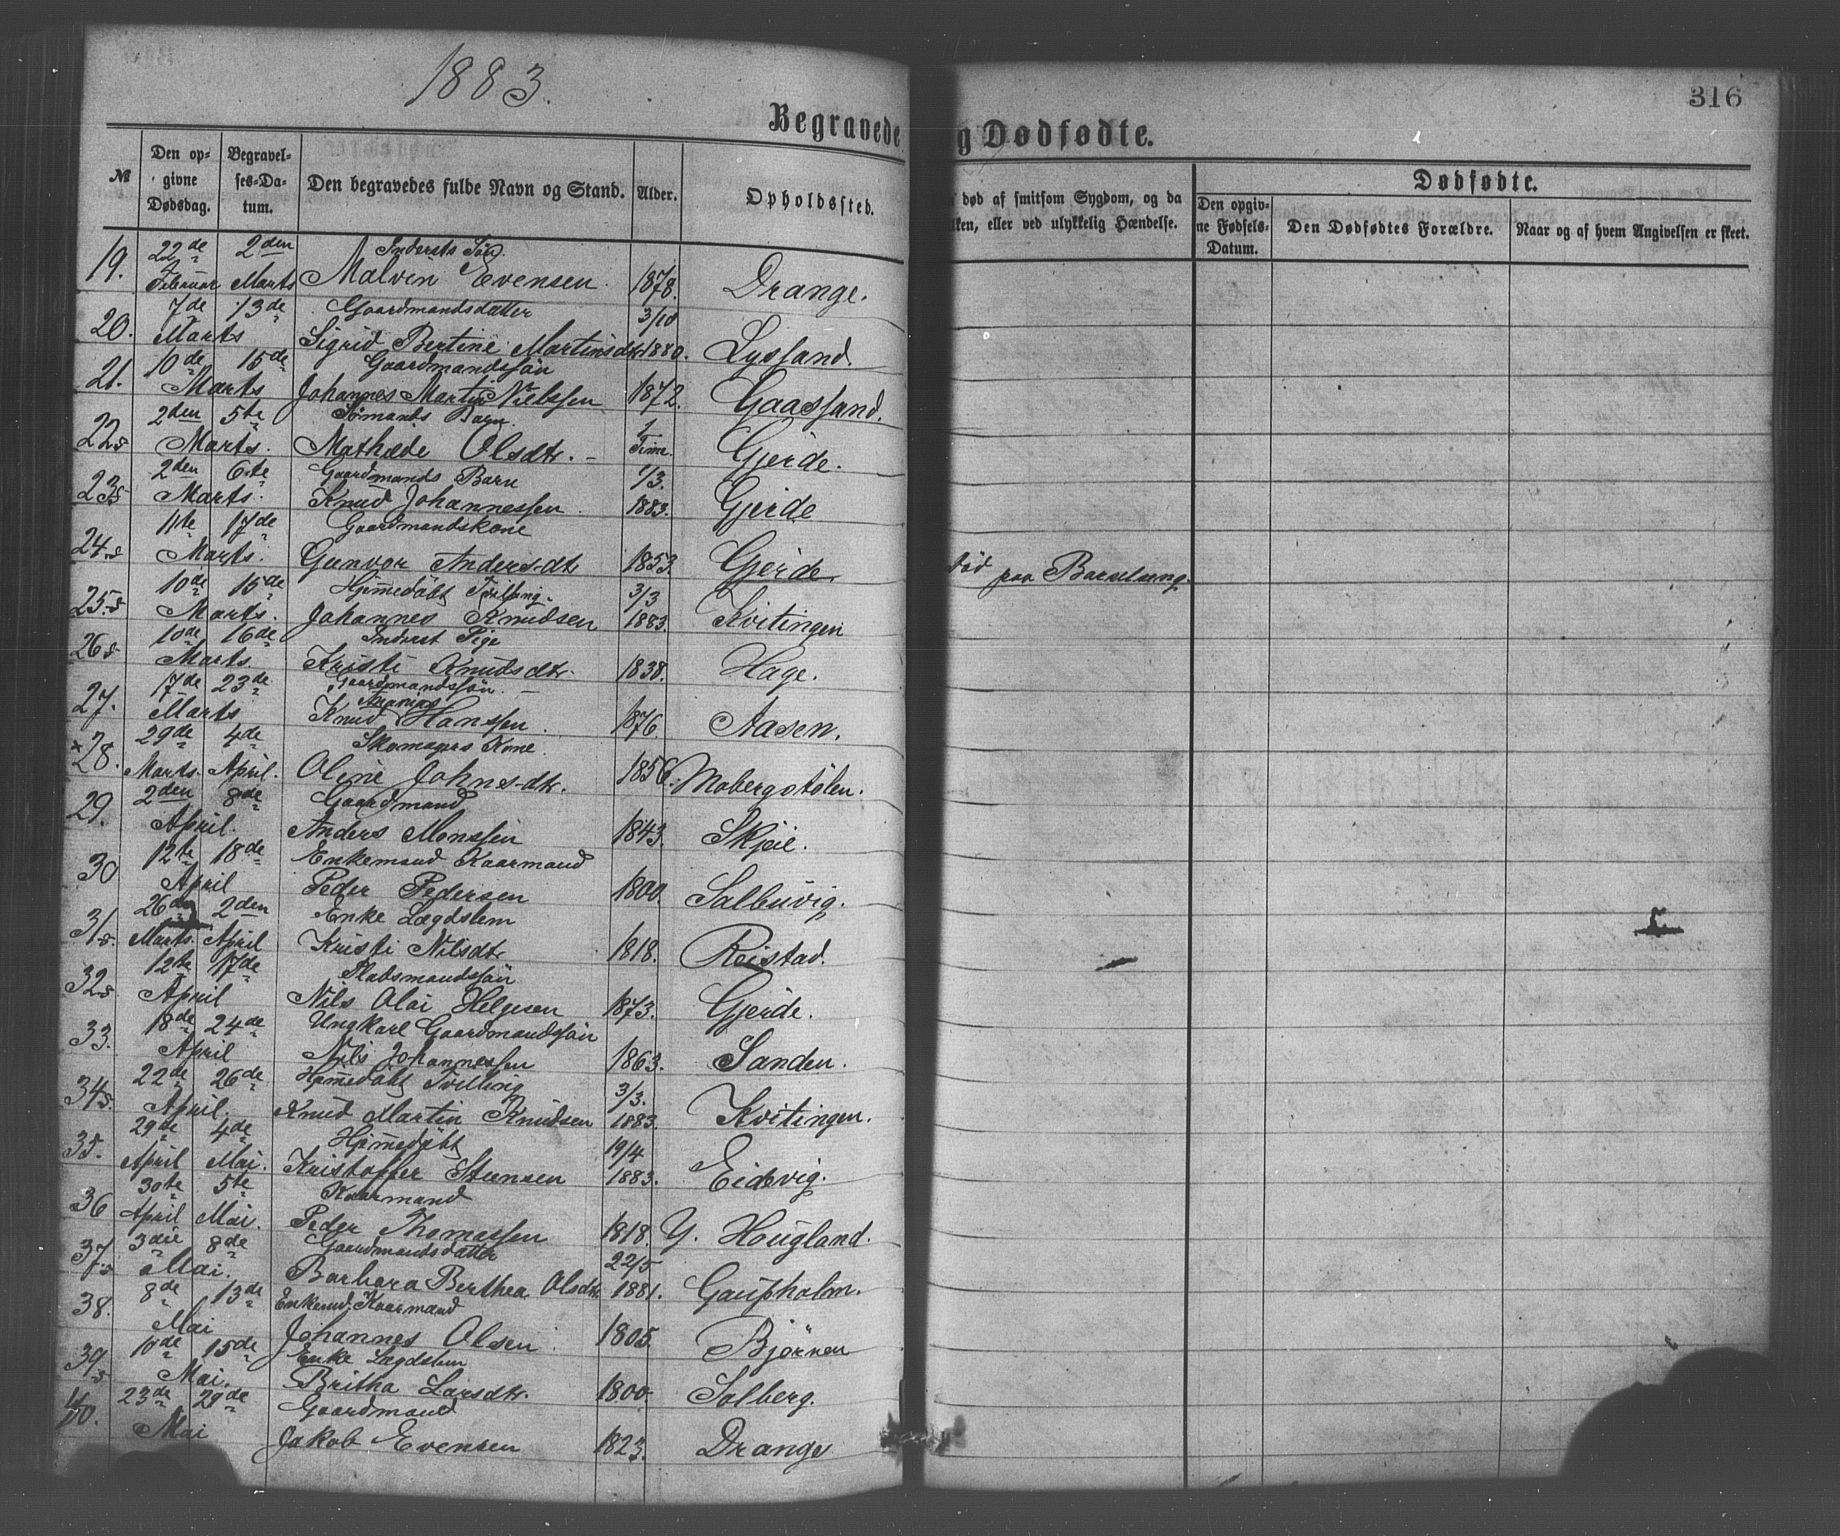 1883.
316
Begravede
g Dødfødte.
№
Den opgivne Dødsdag.
Begravelses-Datum.
Den begravedes fulde Navn og Stand.
Alder.
Opholdssted.
død af smitsom Sygdom, og da
lken, eller ved ulykkelig Hændelse.
Dødfødte.
Den opgivne Fødsels-Datum.
Den Dødfødtes Forældre.
Naar og af hvem Angivelsen er skeet.
22de 2den Indersts Søn.
19. Februar Marts Malvin Evensen 1878. Drange.
7de 13de Gaardmandsdatter 3/10
20. Marts Sigrid Bertine Martinsdtr 1880. Lyssand.
10de 15de Gaardmandssøn
21. Marts Johannes Martin Nielssen 1872. Gaassand.
2den 5te Sømands Barn. 1
22 s Marts. Mathæde Olsdtr. Time. Gjerde.
2den 6te Gaardmands Barn 1/3.
23 s Marts. Knud Johannessen 1883. Gjerde
11te 17de Gaardmandskone
24 s Marts. Gunvor Andersdtr 1853. Gjerde. død paa Barselseng.
10de 15de Hjemedøbt Tvilling. 3/3
25 s Marts. Johannes Knudsen 1883. Kvitingen
10de 16de Inderst Pige
26 s Marts. Kristi Knudsdtr. 1838. Hage.
17de 23de Gaardmandssøn
27. Marts Knud Hanssen. 1876. Aasen.
29de 4de Skomagers Kone.
x 28. Marts. April. Oline Johnsdtr. 1856. Mobergstølen.
2den 8de Gaardmand
29. April. Anders Monssen 1843. Skjeie.
12te 18de Enkemand Kaarmand
30 April Peder Pedersen 1800. Salbuvig.
26de 2den Enke Lægdslem
31 s. Marts. April Kristi Nilsdtr 1818. Reistad.
12te 17de Pladsmandssøn
32 s April Nils Olai Helgesen 1873. Gjerde.
18de 24de Ungkarl Gaardmandssøn
33. April Nils Johannessen 1863. Sanden.
22de 26de Hjemedøbt Tvilling 3/3.
34 s. April. Knud Martin Knudsen 1883. Kvitingen.
29de 4de Hjemedøbt 19/4
35. April Mai. Kristoffer Stensen 1883. Eidevig.
30te 5te Kaarmand
36 April Mai. Peder Thomassen 1818. Y. Hougland.
3die 8de Gaardmandsdatter 22/5
37 s Mai. Barbara Berthea Olsdtr 1881. Gaupholm.
8de 13de Enkemd. Kaarmand
38. Mai Johannes Olsen 1805. Bjørnen
10de 15de Enke Lægdslem
39 s Mai. Britha Larsdtr. 1800. Solberg.
23de 29de Gaardmand
40. Mai Jakob Evensen 1823. Drange